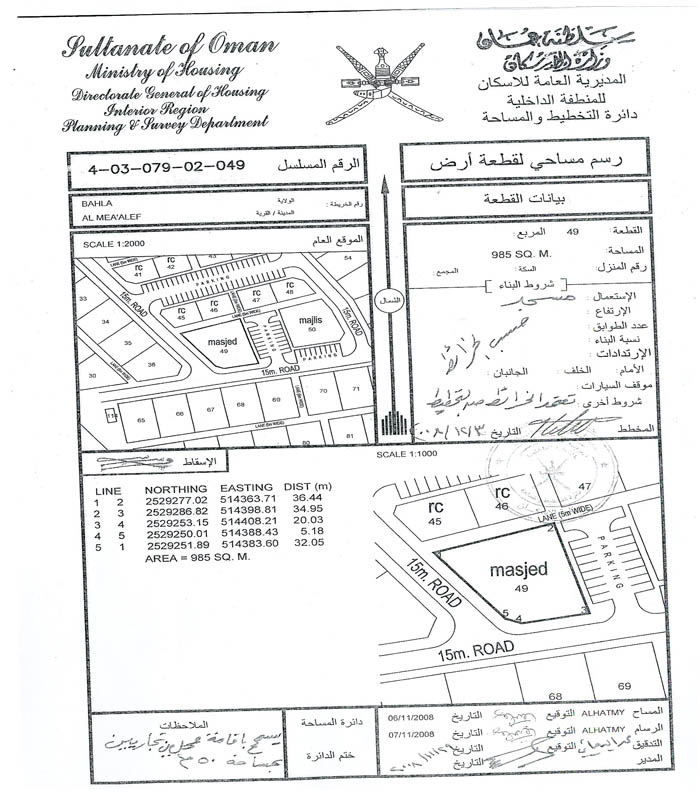 Sultanate of Oman
Ministry of Housing
Directorate General of Housing
Interior Region
Planning & Survey Department
سلطنة عمان
وزارة الإسكان
المديرية العامة للاسكان
للمنطقة الداخلية
دائرة التخطيط والمساحة
4-03-079-02-049 الرقم المسلسل
رسم مساحي لقطعة أرض
BAHLA الولاية
AL MEA'ALEF المدينة / القرية
رقم الخريطة :
بيانات القطعة
SCALE 1:2000 الموقع العام
القطعة : 49 المربع :
المساحة : 985 SQ. M.
رقم المنزل : السكة : المجمع :
شروط البناء
الإستعمال : مسجد
الإرتفاع :
عدد الطوابق :
نسبة البناء :
الإرتدادات :
حسب الخرائط
الأمام : الخلف : الجانبان :
موقف السيارات :
شروط أخرى :
المخطط التاريخ ٢٠٠٨/١٢/٣
الشمال
LANE (5m WIDE)
rc
41
rc
42
54
PARKING
33
34
35
36
37
38
30
15m. ROAD
rc
45
rc
46
rc
47
rc
48
LANE (5m WIDE)
masjed
49
PARKING
majlis
50
15m. ROAD
PARKING
15m. ROAD
65
66
67
68
69
70
71
LANE (5m WIDE)
80
81
الإسقاط
SCALE 1:1000
LINE NORTHING EASTING DIST (m)
1 2 2529277.02 514363.71 36.44
2 3 2529286.82 514398.81 34.95
3 4 2529253.15 514408.21 20.03
4 5 2529250.01 514388.43 5.18
5 1 2529251.89 514383.60 32.05
AREA = 985 SQ. M.
rc
45
rc
46
47
LANE (5m WIDE)
2
masjed
49
5
4
3
PARKING
15m. ROAD
15m. ROAD
68
69
الملاحظات
يسمح بإقامة محلين تجاريين
بمساحة ٥٠ م٢
دائرة المساحة
ختم الدائرة
المساح ALHATMY التوقيع التاريخ 06/11/2008
الرسام ALHATMY التوقيع التاريخ 07/11/2008
التدقيق التوقيع التاريخ
المدير